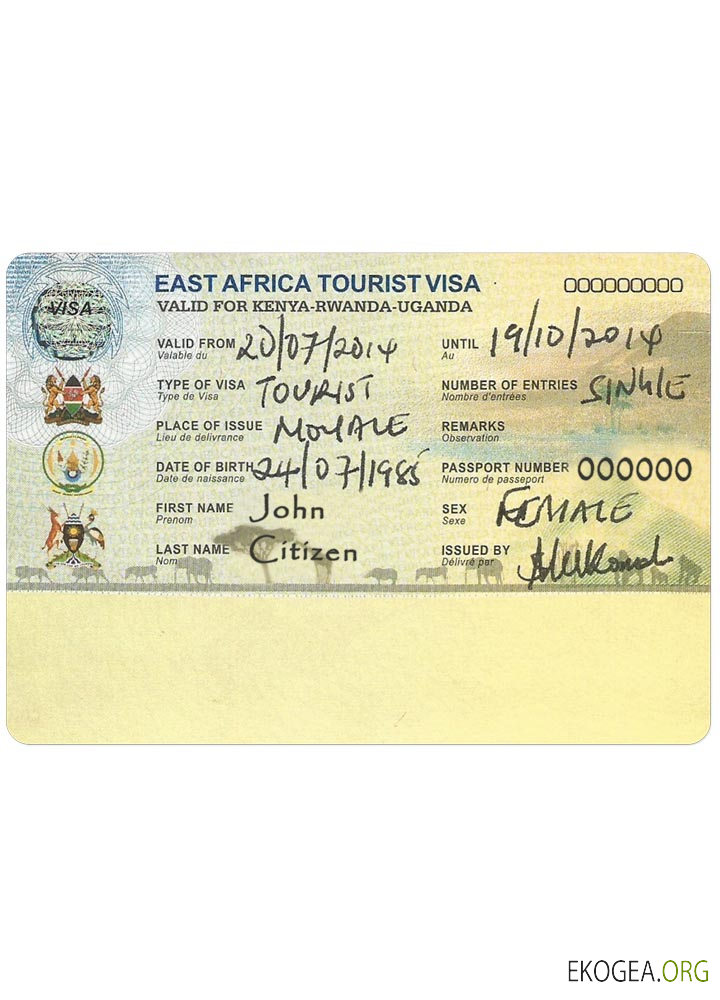 EAST AFRICA TOURIST VISA
000000000
VISA
VALID FOR KENYA-RWANDA-UGANDA
VALID FROM 20/07/2014 UNTIL 19/10/2014
Valable du Au
TYPE OF VISA TOURIST NUMBER OF ENTRIES SINGLE
Type de Visa Nombre d'entrées
PLACE OF ISSUE MOYALE REMARKS
Lieu de delivrance Observation
DATE OF BIRTH 24/07/1985 PASSPORT NUMBER 000000
Date de naissance Numero de passeport
FIRST NAME John SEX FEMALE
Prenom Sexe
LAST NAME Citizen ISSUED BY
Nom Délivré par
EKOGEA.ORG